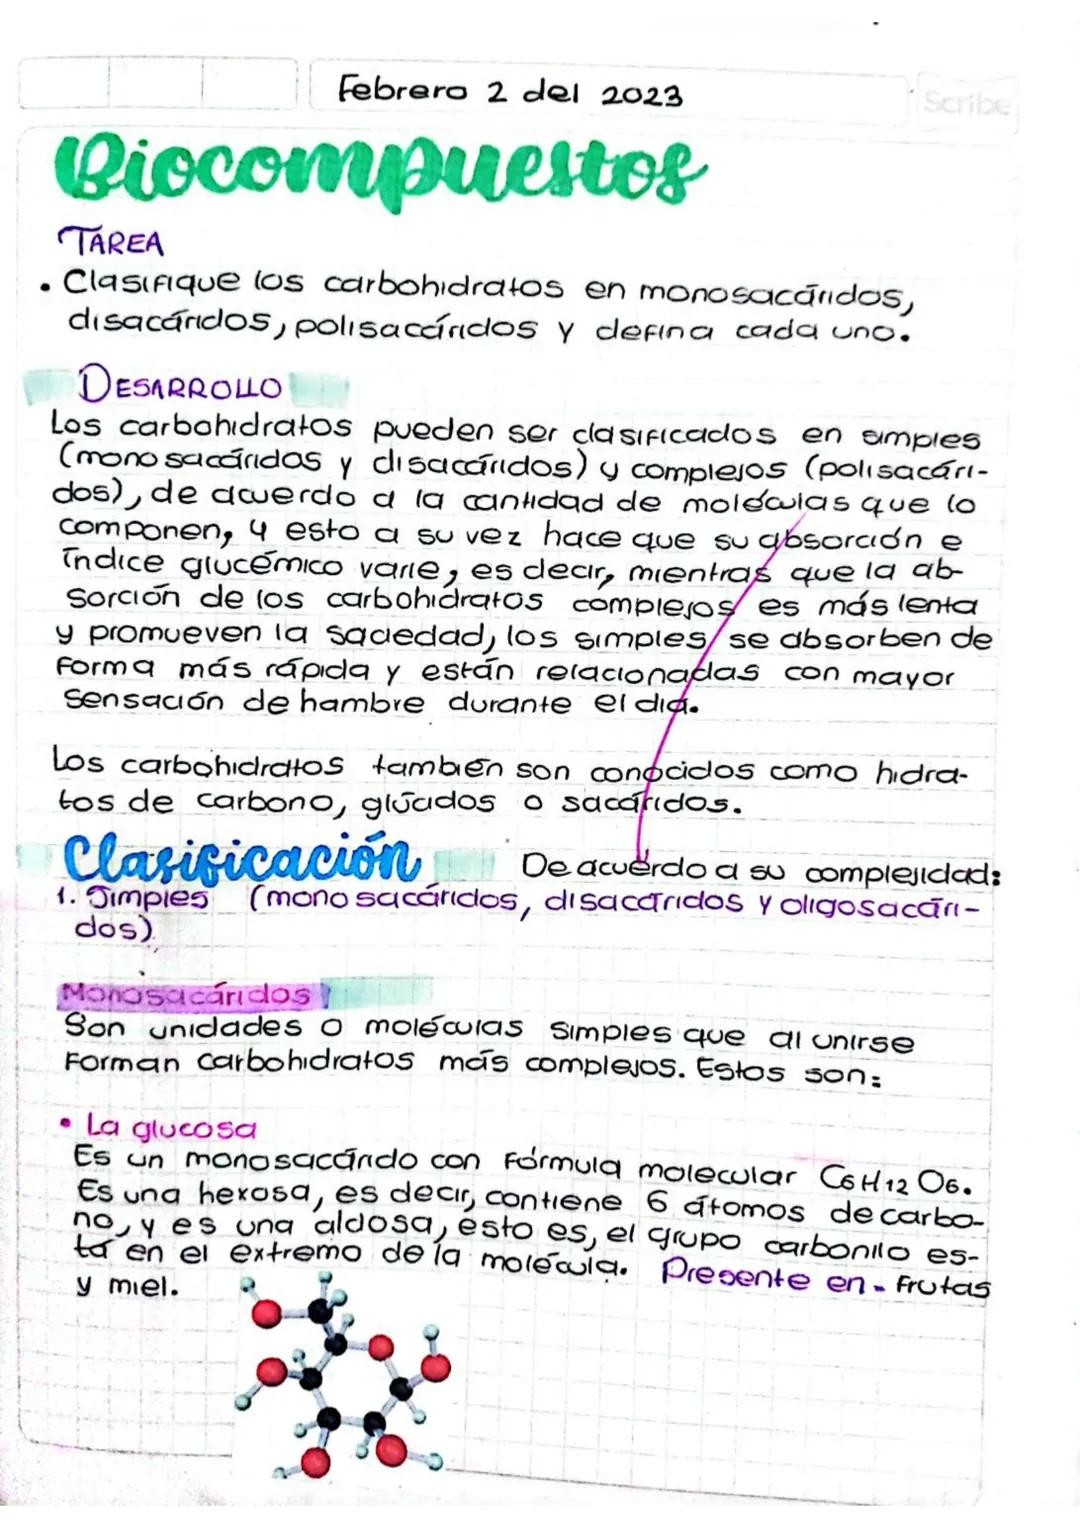 Febrero 2 del 2023
Scribe
Biocompuestos
TAREA
• Clasifique los carbohidratos en monosacáridos,
disacáridos, polisacáridos y defina cada uno.
DESARROLLO
Los carbohidratos pueden ser clasificados en simples
(monosacáridos y disacáridos) y complejos (polisacári-
dos), de acuerdo a la cantidad de moléculas que lo
componen, y esto a su vez hace que su absorción e
índice glucémico varíe, es decir, mientras que la ab-
sorción de los carbohidratos complejos es más lenta
y promueven la saciedad, los simples se absorben de
forma más rápida y están relacionadas con mayor
sensación de hambre durante el día.
Los carbohidratos también son conocidos como hidra-
tos de carbono, glúcidos o sacáridos.
Clasificación De acuerdo a su complejidad:
1. Simples (monosacáridos, disacáridos y oligosacári-
dos).
Monosacáridos
Son unidades o moléculas simples que al unirse
forman carbohidratos más complejos. Estos son:
• La glucosa
Es un monosacárido con fórmula molecular C6H12O6.
Es una hexosa, es decir, contiene 6 átomos de carbo-
no, y es una aldosa, esto es, el grupo carbonilo es-
tá en el extremo de la molécula. Presente en - frutas
y miel.